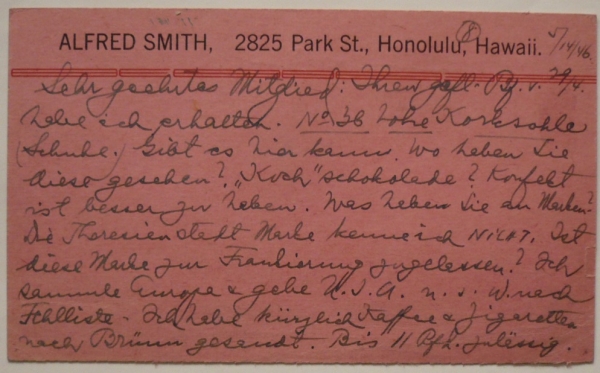 ALFRED SMITH, 2825 Park St., Honolulu, Hawaii. 5/14/46
8
Sehr geehrtes Mitglied: Ihren gefl. Bf. v. 29/4.
habe ich erhalten. No 36 hohe Korksohle
(Schuhe.) Gibt es hier kaum. Wo haben Sie
diese gesehen? "Koch" schokolade? Konfekt
ist besser zu haben. Was haben Sie an Marken?
Die Theresienstadt Marke kenne ich NICHT. Ist
diese Marke zur Frankierung zugelassen? Ich
sammle Europa & gebe U.S.A. u. s. W. nach
Fehlliste. Ich habe kürzlich Kaffee & Zigaretten
nach Brünn gesandt. Bis 11 Pfd. zulässig.